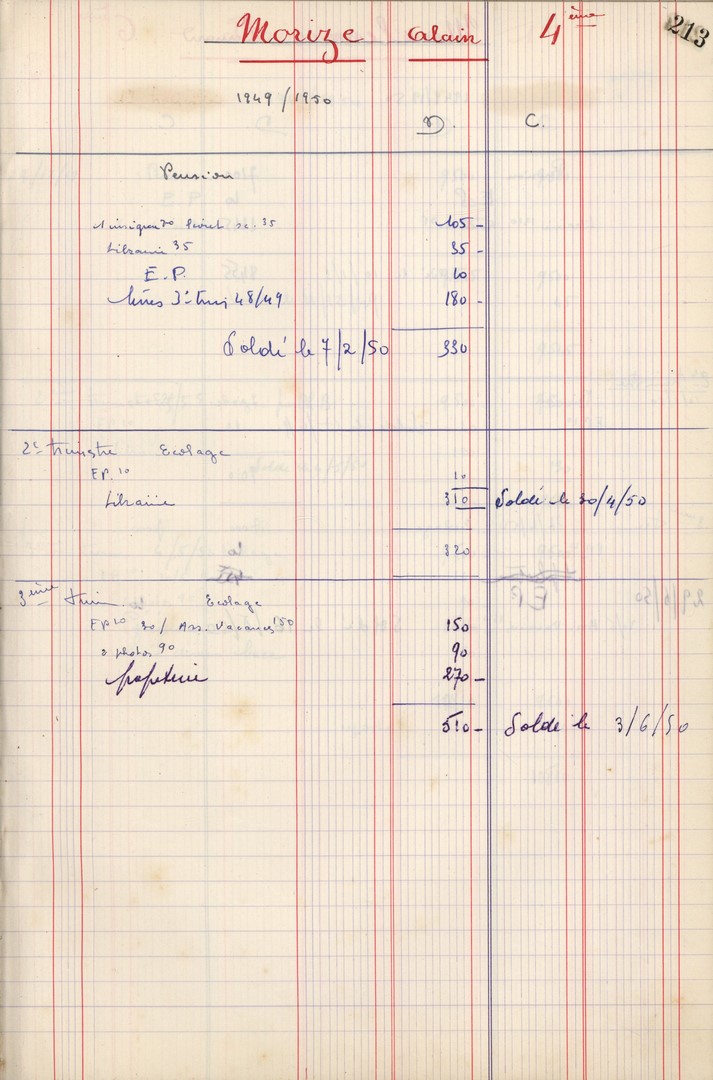 Morize Alain 4ème 213
1949/1950
D. C.
Pension
1 insigne 70 livret sc. 35 105 -
Librairie 35 35 -
E.P. 10
livres 3e trim 48/49 180 -
Soldé le 7/2/50 330
2e trimestre Ecolage
EP. 10 10
Librairie 310 Soldé le 30/4/50
320
3ème trim. Ecolage
EP 10 Ass. Vacances 150 150
2 photos 90 90
papeterie 270 -
510 - Soldé le 3/6/50